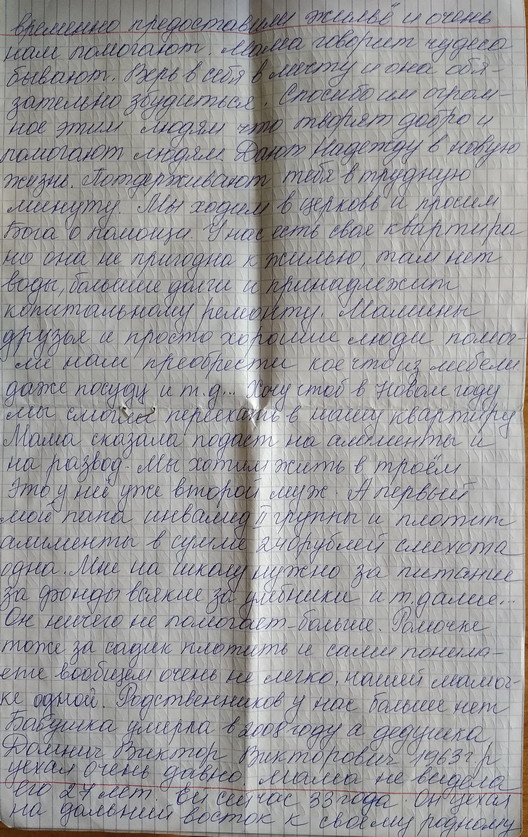 временно предоставили жильё и очень
нам помогают. Мама говорит чудеса
бывают. Верь в себя в мечту и она обя-
зательно збудиться. Спосибо им огром-
ное этим людям что творят добро и
помогают людям. Дают надежду в новую
жизнь. Потдерживают тебя в трудную
минуту. Мы ходим в церковь и просим
Бога о помощи. У нас есть своя квартира
но она не пригодна к жилью, там нет
воды, большие долги и принадлежит
копитальному ремонту. Мамины
друзья и просто хорошие люди помог-
ли нам преобрести кое что из мебели
даже посуду и т.д... Хочу чтоб в Новом году
мы смогли переехать в нашу квартиру
Мама сказала подаст на алименты и
на развод. Мы хотим жить в троём
Это у неё уже второй муж. А первый
мой папа инвалид II группы и плотит
алименты в сумме 240рублей смехота
одна. Мне на школу нужно за питание
за фонды всякие за учебники и т.далие...
Он ничего не помогает больше. Ромочке
тоже за садик плотить и сами понема-
ете вообщем очень не легко, нашей мамоч-
ке одной. Родственников у нас больше нет
Бабушка умерла в 2008 году а дедушка
Виктор Викторович 1963г/р
уехал очень давно. Мама не видела
его 27 лет. Ей сейчас 33 года. Он уехал
на дальний восток к своему родному